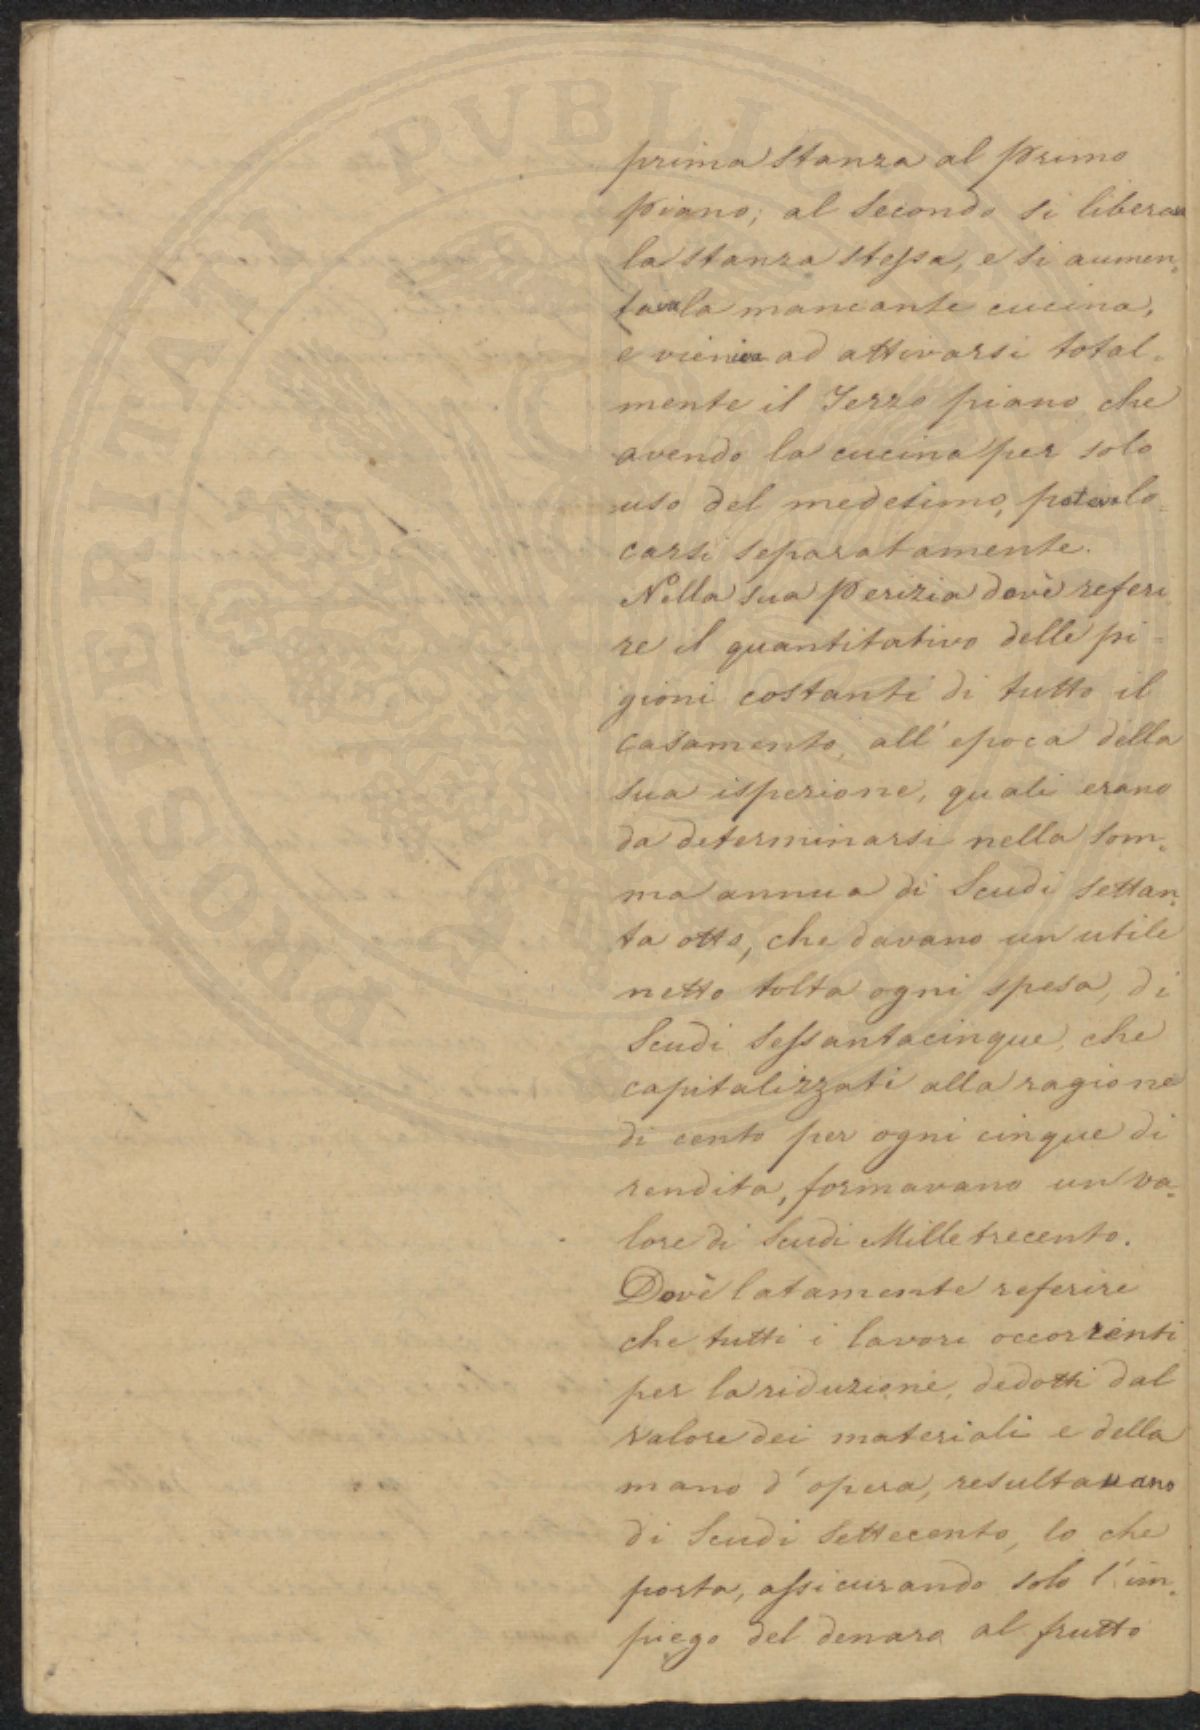 prima stanza al Primo
Piano; al Secondo si liberava
la stanza stessa, e si aumen=
tava la mancante cucina,
e veniva ad attivarsi total=
mente il Terzo piano che
avendo la cucina per solo
uso del medesimo, poteva lo=
carsi separatamente.
Nella sua Perizia dovè referi
re il quantitativo delle pi=
gioni costanti di tutto il
Casamento, all' epoca della
sua ispezione, quali erano
da determinarsi nella som=
ma annua di Scudi settan=
ta otto, che davano un utile
netto tolta ogni spesa, di
Scudi Sessantacinque, che
capitalizzati alla ragione
di cento per ogni cinque di
rendita, formavano un va=
lore di Scudi Mille trecento.
Dovè latamente referire
che tutti i lavori occorrenti
per la riduzione, dedotti dal
valore dei materiali e della
mano d' opera, resultavano
di Scudi Settecento, lo che
porta, assicurando solo l' im=
piego del denaro al frutto
PROSPERITATI PUBLICAE